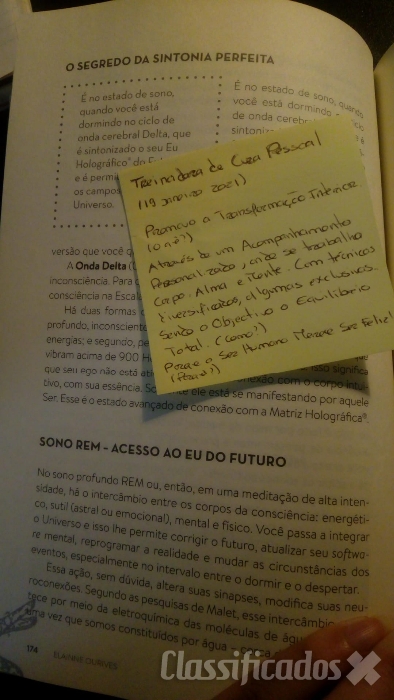 O SEGREDO DA SINTONIA PERFEITA
É no estado de sono,
quando você está
dormindo no ciclo de
onda cerebral Delta, que
é sintonizado o seu Eu
Holográfico®
e é perm
os campos
Universo.
É no estado de sono, quando
você está dormindo
de onda cereb
sintoni
Treinadora de Cura Pessoal
(19 Janeiro 2021)
Promovo a Transformação Interior.
(o quê?)
Através de um Acompanhamento
Personalizado, onde se trabalha
Corpo, Alma e Mente. Com técnicas
diversificadas, algumas exclusivas.
Sendo o Objectivo o Equilíbrio
Total. (como?)
Porque o Ser Humano Merece Ser Feliz!
versão que você
A Onda Delta
inconsciência. Para
consciência na Escal
Há duas formas
profundo, inconsciente
energias; e segundo, pe
vibram acima de 900 H
isso significa
que seu ego não está
conexão com o corpo intui-
tivo, com sua essência.
ele está se manifestando por aquele
Ser. Esse é o estado avançado de conexão com a Matriz Holográfica®.
SONO REM – ACESSO AO EU DO FUTURO
No sono profundo REM ou, então, em uma meditação de alta inten-
sidade, há o intercâmbio entre os corpos da consciência: energéti-
co, sutil (astral ou emocional), mental e físico. Você passa a integrar
o Universo e isso lhe permite corrigir o futuro, atualizar seu softwa-
re mental, reprogramar a realidade e mudar as circunstâncias dos
eventos, especialmente no intervalo entre o dormir e o despertar.
Essa ação, sem dúvida, altera suas sinapses, modifica suas neu-
roconexões. Segundo as pesquisas de Malet, esse intercâmbio
tece por meio da eletroquímica das moléculas de águ
uma vez que somos constituídos por água
174
ELAINNE OURIVES
ClassificadosX